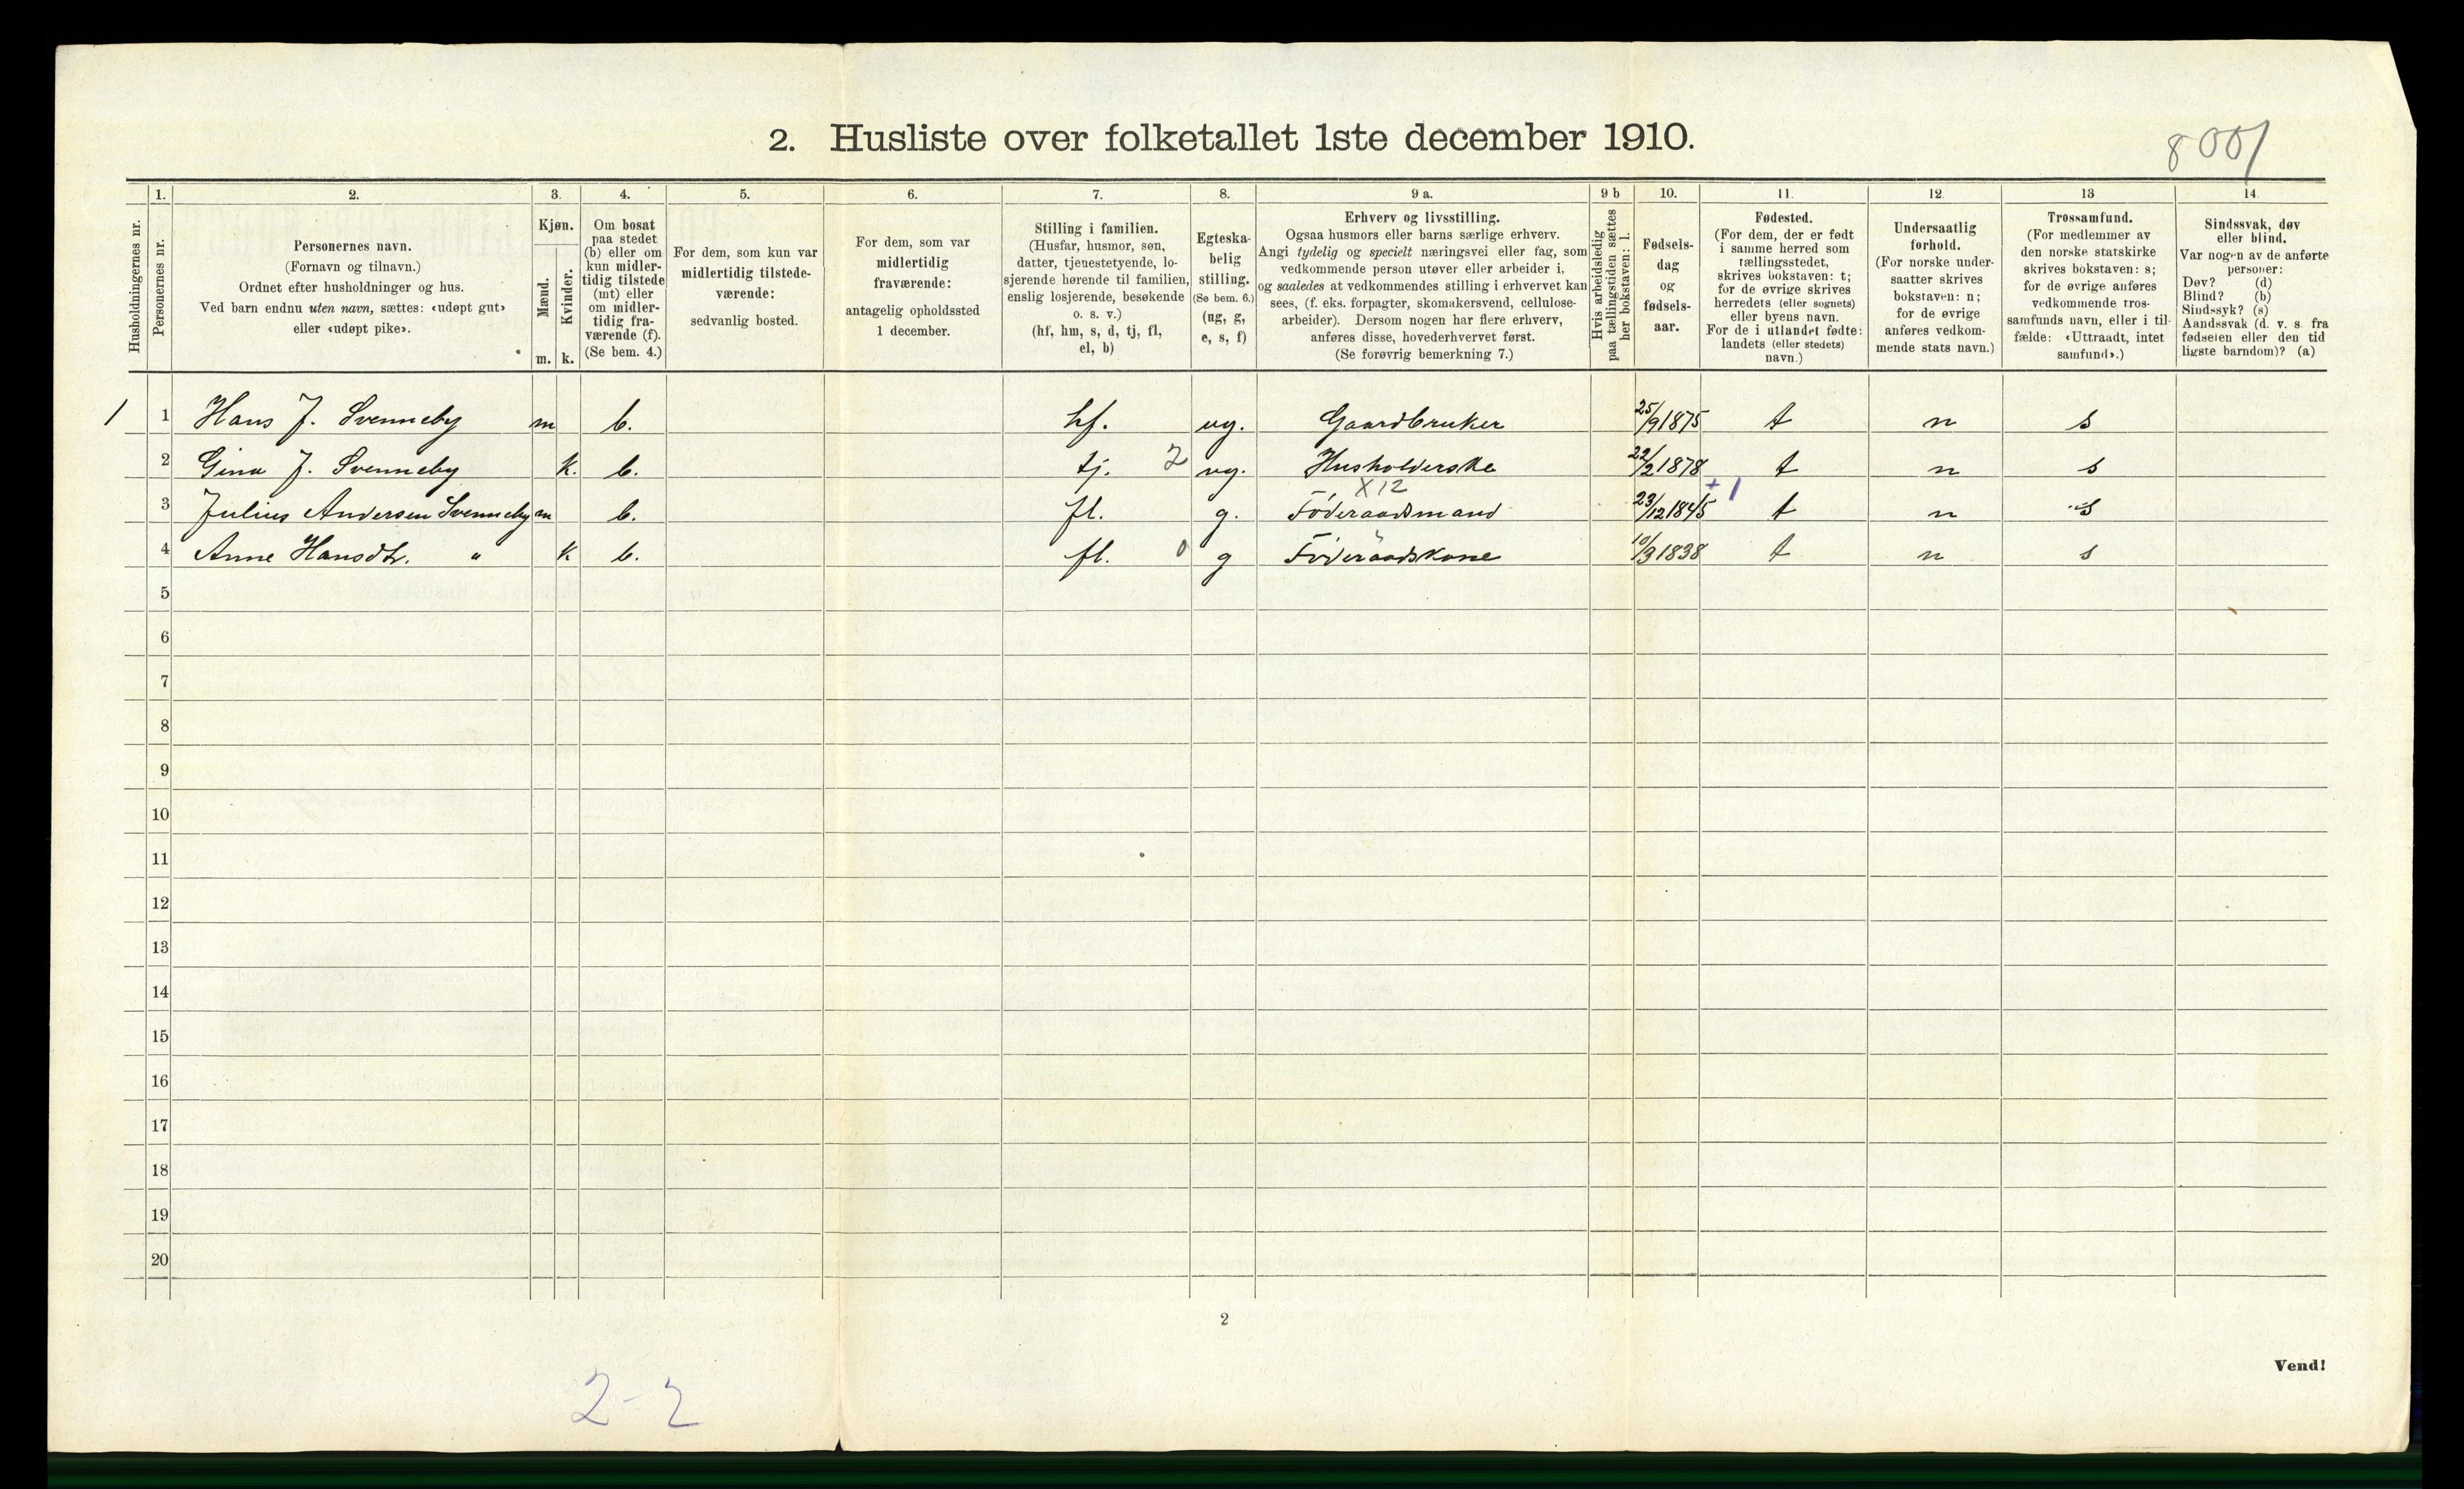 2. Husliste over folketallet 1ste december 1910.
8001
1. 2. 3. 4. 5. 6. 7. 8. 9 a. 9 b 10. 11. 12. 13 14.
Husholdningernes nr.
Personernes nr.
Personernes navn.
(Fornavn og tilnavn.)
Ordnet efter husholdninger og hus.
Ved barn endnu uten navn, sættes: «udøpt gut»
eller «udøpt pike».
Kjøn.
Mænd.
Kvinder.
m. k.
Om bosat
paa stedet
(b) eller om
kun midler-
tidig tilstede
(mt) eller
om midler-
tidig fra-
værende (f).
(Se bem. 4.)
For dem, som kun var
midlertidig tilstede-
værende:
sedvanlig bosted.
For dem, som var
midlertidig
fraværende:
antagelig opholdssted
1 december.
Stilling i familien.
(Husfar, husmor, søn,
datter, tjenestetyende, lo-
sjerende hørende til familien,
enslig losjerende, besøkende
o. s. v.)
(hf, hm, s, d, tj, fl,
el, b)
Egteska-
belig
stilling.
(Se bem. 6.)
(ug, g,
e, s, f)
Erhverv og livsstilling.
Ogsaa husmors eller barns særlige erhverv.
Angi tydelig og specielt næringsvei eller fag, som
vedkommende person utøver eller arbeider i,
og saaledes at vedkommendes stilling i erhvervet kan
sees, (f. eks. forpagter, skomakersvend, cellulose-
arbeider). Dersom nogen har flere erhverv,
anføres disse, hovederhvervet først.
(Se forøvrig bemerkning 7.)
Hvis arbeidsledig
paa tællingstiden sættes
her bokstaven: l.
Fødsels-
dag
og
fødsels-
aar.
Fødested.
(For dem, der er født
i samme herred som
tællingsstedet,
skrives bokstaven: t;
for de øvrige skrives
herredets (eller sognets)
eller byens navn.
For de i utlandet fødte:
landets (eller stedets)
navn.)
Undersaatlig
forhold.
(For norske under-
saatter skrives
bokstaven: n;
for de øvrige
anføres vedkom-
mende stats navn.)
Trossamfund.
(For medlemmer av
den norske statskirke
skrives bokstaven: s;
for de øvrige anføres
vedkommende tros-
samfunds navn, eller i til-
fælde: «Uttraadt, intet
samfund».)
Sindssvak, døv
eller blind.
Var nogen av de anførte
personer:
Døv? (d)
Blind? (b)
Sindssyk? (s)
Aandssvak (d. v. s. fra
fødselen eller den tid
ligste barndom)? (a)
1 1 Hans J. Svenneby m b. hf. ug. Gaardbruker 25/9 1875 t n s
2 Gina J. Svenneby k. b. tj. 2 ug. Husholderske 22/2 1878 t n s
X 12 + 1
3 Julius Andersen Svenneby m b. fl. g. Føderaadsmand 23/12 1845 t n s
4 Anne Hansdtr. " k b. fl. 0 g Føderaadskone 10/3 1838 t n s
5
6
7
8
9
10
11
12
13
14
15
16
17
18
19
20
2
Vend!
2-2